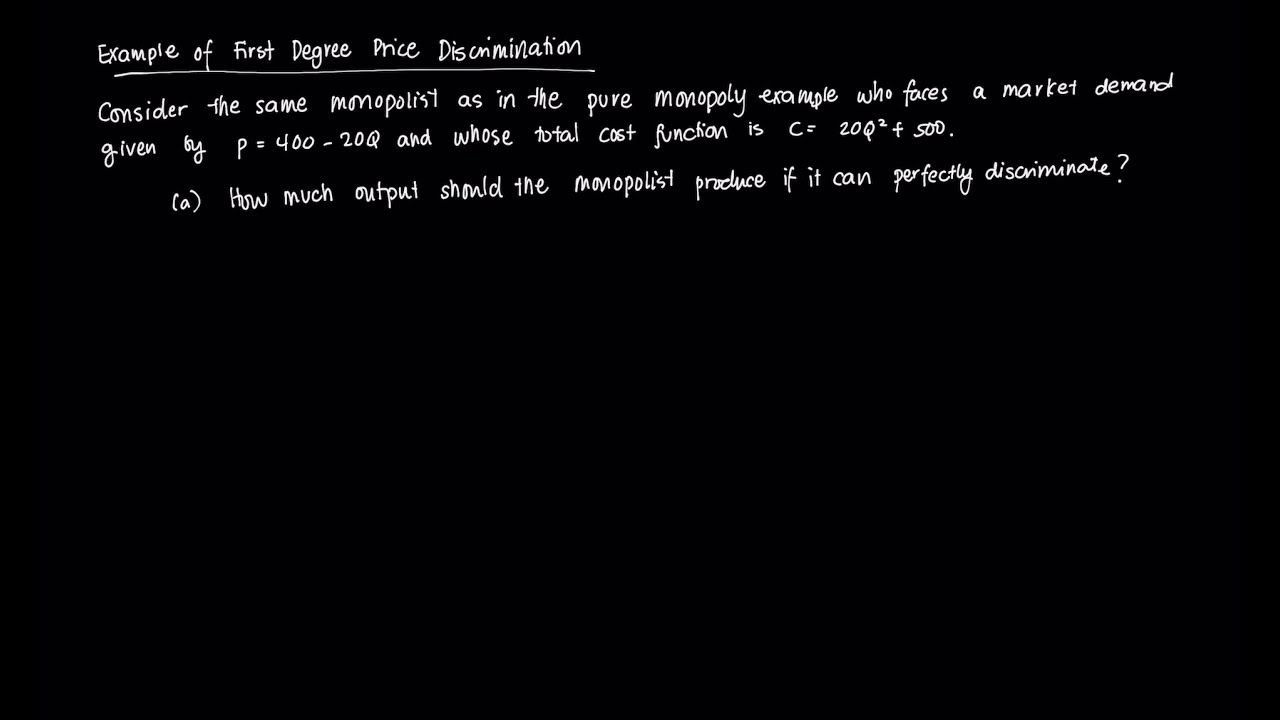 Example of First Degree Price Discrimination
Consider the same monopolist as in the pure monopoly example who faces a market demand
given by p = 400 - 20Q and whose total cost function is C = 20Q² + 500.
(a) How much output should the monopolist produce if it can perfectly discriminate?